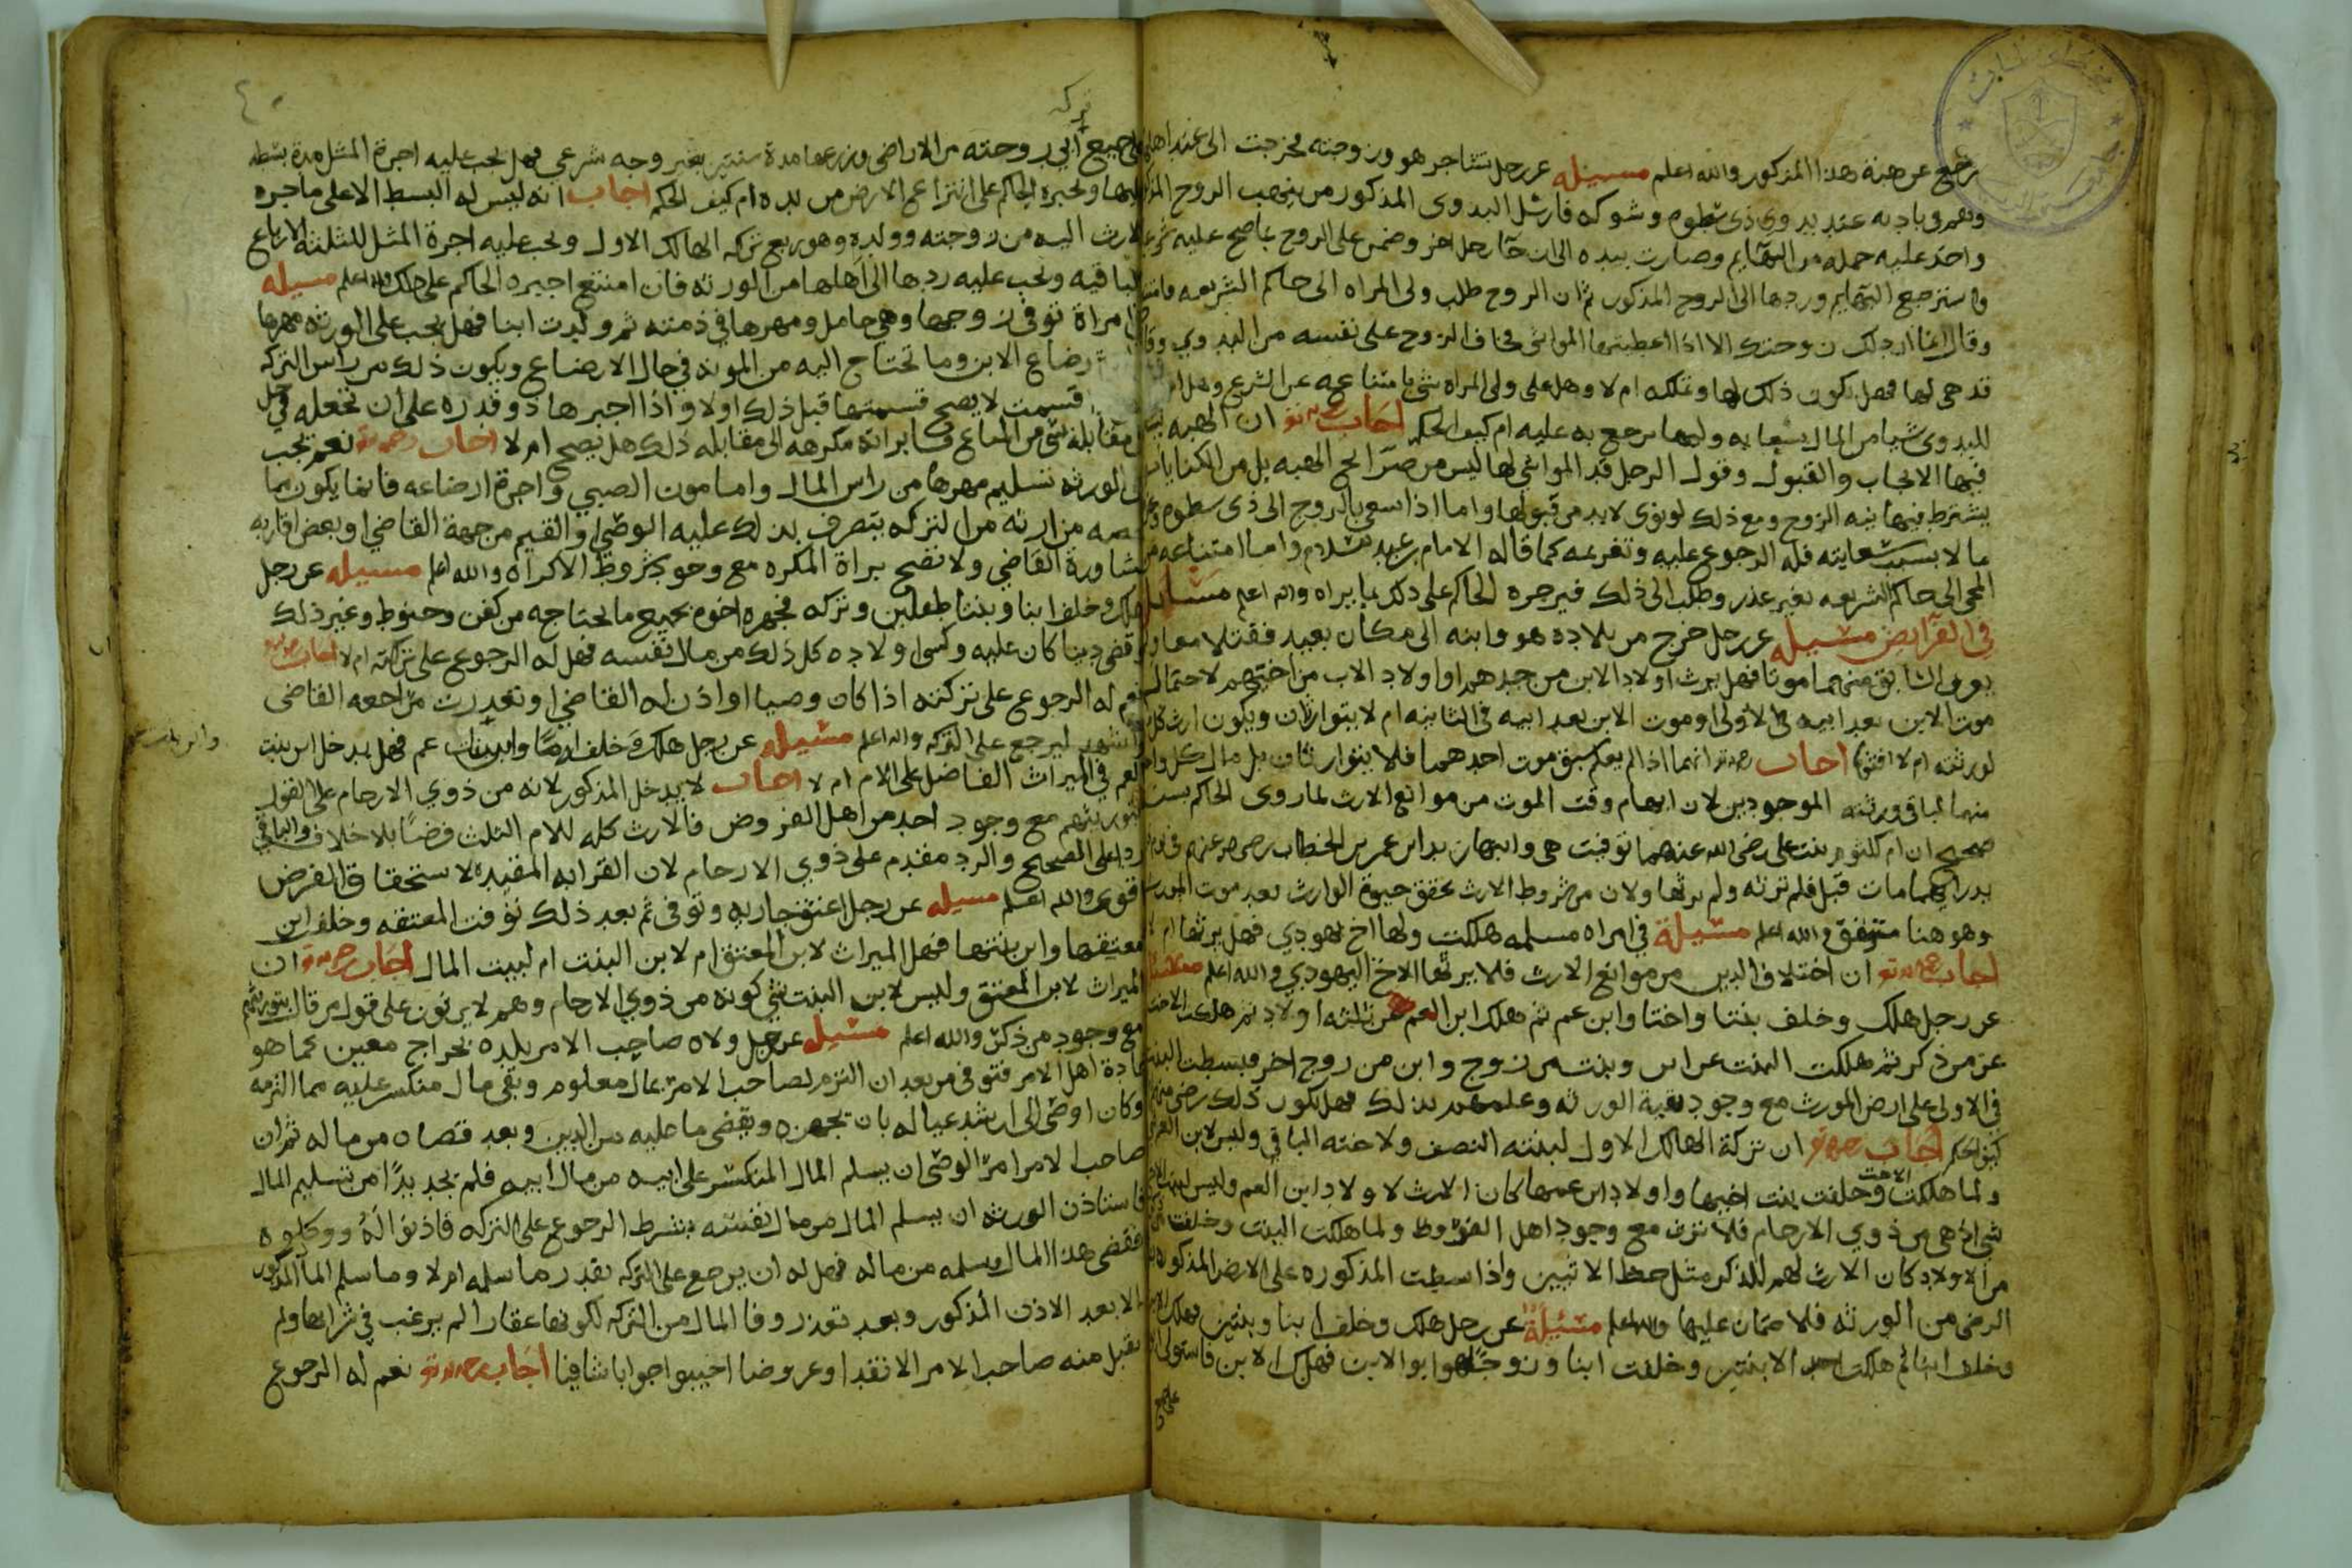 يرجع عن هبة هذا المذكور والله اعلم مسئله عن رجل تشاجر هو وزوجته فخرجت الى عند اهلها
وهم في باديه عند بدوي ذي سطوم وشوكه فارسل البدوي المذكور من ينهب الزوج
واخذ عليه جمله من البهايم وصارت بيده الى ان جا رجل اخر وضمن على الزوج بما صح عليه
واسترجع البهايم وردها الى الزوج المذكور ثم ان الزوج طلب ولي المراه الى حاكم الشريعه
وقال انا اردلك زوجتك الا اذا اعطيتها المواشي فخاف الزوج على نفسه من البدوي
قد هي لها فهل يكون ذلك لها وتملكه ام لا وهل على ولي المراه شي بامتناعه عن الشرع
للبدوي شيا من المال يرجع به عليه ام كيف الحكم اجاب ان الهبه
فيها الايجاب والقبول وقول الرجل قد المواشي لها ليس من صرايح الهبه بل من الكنايات
يشترط فيها نيه الزوج ومع ذلك لو نوى لابد من قبولها واما اذا سعي بالزوج الى ذي سطوم
ما لا بسبب سعايته فله الرجوع عليه وتغريمه كما قاله الامام بن عبد السلام واما امتناعه
المجي الى حاكم الشريعه بغير عذر وطلب الى ذلك فيزجره الحاكم على ذلك بما يراه والله اعلم مسايل
في الفرايض مسئله عن رجل خرج من بلاده هو وابنه الى مكان بعيد فقتلا معا
يعرف السابق منهما موتا فهل يرث اولاد الابن من جدهم او اولاد الاب من اختهم لاحتمال
موت الابن بعد ابيه في الاولى او موت الابن بعد ابيه في الثانيه ام لا يتوارثان ويكون ارث كل
لورثته ام لا افتونا اجاب انهما اذا لم يعلم سبق موت احدهما فلا يتوارثان بل مال كل واحد
منهما لباقي ورثته الموجودين لان ابهام وقت الموت من موانع الارث لما روى الحاكم بسند
صحيح ان ام كلثوم بنت علي رضي الله عنهما توفيت هي وابنها زيد ابن عمر بن الخطاب رضي الله عنهم
يدر ايهما مات قبل فلم ترثه ولم يرثها ولان من شروط الارث تحقق حيوة الوارث بعد موت المورث
وهو هنا منتف والله اعلم مسئلة في امراه مسلمه هلكت ولها اخ يهودي فهل يرثها ام لا
اجاب ان اختلاف الدين من موانع الارث فلا يرثها الاخ اليهودي والله اعلم مسئلة
عن رجل هلك وخلف بنتا واختا وابن عم ثم هلك ابن العم عن ثلثه اولاد ثم هلكت الاخت
عن من ذكر ثم هلكت البنت عن ابن وبنت من زوج وابن من زوج اخر فبسطت البنت
في الاولى على ارض المورث مع وجود بقية الورثه وعلمهم بذلك فهل يكون ذلك رضى منهم
كيف الحكم اجاب ان تركة الهالك الاول لبنته النصف ولاخته الباقي وليس لابن العم
ولما هلكت الاخت وخلفت بنت اخيها واولاد ابن عمها كان الارث لاولاد ابن العم وليس لبنت الاخ
شي اذ هي من ذوي الارحام فلا ترث مع وجود اهل الفروض ولما هلكت البنت وخلفت
من الاولاد كان الارث لهم للذكر مثل حظ الانثيين واذا بسطت المذكوره على الارض المذكوره
الرضى من الورثه فلا ضمان عليها والله اعلم مسئلة عن رجل هلك وخلف ابنا وبنتين فهلك الابن
وخلف ابنا ثم هلكت احد الابنتين وخلفت ابنا وزوجا هو ابو الابن فهلك الابن فاستولى
على جميع
تركه
على جميع ابي زوجته من الاراضي وزرعها مدة سنتين بغير وجه شرعي فهل يجب عليه اجرة المثل مدة بسطه
عليها ويجبره الحاكم على انتزاع الارض من يده ام كيف الحكم اجاب انه ليس له البسط الا على ما جره
الارث اليه من زوجته وولده وهو ربع تركه الهالك الاول ويجب عليه اجرة المثل للثلثة الارباع
الباقيه ويجب عليه ردها الى اهلها من الورثه فان امتنع اجبره الحاكم على ذلك والله اعلم مسيله
امراة توفي زوجها وهي حامل ومهرها في ذمته ثم ولدت ابنا فهل يجب على الورثه مهرها
رضاع الابن وما تحتاج اليه من المونه في حال الارضاع ويكون ذلك من راس التركه
قسمت لا يصح قسمتها قبل ذلك اولا واذا اجبرها ذو قدره على ان تجعله في حل
مقابلة شي من المتاع فابراته مكرهه الى مقابله ذلك هل يصح ام لا اجاب نعم يجب
على الورثه تسليم مهرها من راس المال واما مون الصبي واجرة ارضاعه فانما يكون مما
خصه من ارثه من التركه يتصرف بذلك عليه الوصي او القيم من جهة القاضي او بعض اقاربه
بمشاورة القاضي ولا تصح براة المكره مع وجود شروط الاكراه والله اعلم مسيله عن رجل
هلك وخلف ابنا وبنتا طفلين وتركه فجهزه اخوه بجميع ما يحتاجه من كفن وحنوط وغير ذلك
وقضى دينا كان عليه وكسى اولاده كل ذلك من مال نفسه فهل له الرجوع على تركته ام لا اجاب
نعم له الرجوع على تركته اذا كان وصيا او اذن له القاضي او تعذرت مراجعه القاضي
واشهد ليرجع على التركه والله اعلم مسيله عن رجل هلك وخلف اما وابن بنت عم فهل يدخل ابن بنت
العم في الميراث الفاضل على الام ام لا اجاب لا يدخل المذكور لانه من ذوي الارحام على القول
بتوريثهم مع وجود احد من اهل الفروض فالارث كله للام الثلث فرضا بلا خلاف والباقي
ردا على الصحيح والرد مقدم على ذوي الارحام لان القرابه المفيده لاستحقاق الفرض
اقوى والله اعلم مسيله عن رجل اعتق جاريه وتوفي ثم بعد ذلك توفت المعتقه وخلف ابن
معتقها وابن بنتها فهل الميراث لابن المعتق ام لابن البنت ام لبيت المال اجاب ان
الميراث لابن المعتق وليس لابن البنت شي كونه من ذوي الارحام وهم لا يرثون على قول من قال بتوريثهم
مع وجود من ذكر والله اعلم مسيله عن رجل ولاه صاحب الامر بلده بخراج معين كما هو
عادة اهل الامر فتوفي من بعد ان التزم لصاحب الامر بمال معلوم وبقي مال منكسر عليه مما التزمه
وكان اوصى الى ارشد عياله بان يجهزه ويقضي ما عليه من الدين وبعد قضاه من ماله ثم ان
صاحب الامر امر الوصي ان يسلم المال المنكسر على ابيه من مال ابيه فلم يجد بدا من تسليم المال
فاستاذن الورثه ان يسلم المال من مال نفسه بشرط الرجوع على التركه فاذنوا له ووكلوه
فقضى هذا المال وسلمه من ماله فهل له ان يرجع على التركه بقدر ما سلمه ام لا وما سلم المال المذكور
الا بعد الاذن المذكور وبعد تعذر وفا المال من التركه لكونها عقارا لم يرغب في شرايها ولم
يقبل منه صاحب الامر الا نقدا وعروضا اجيبوا جوابا شافيا اجاب نعم له الرجوع